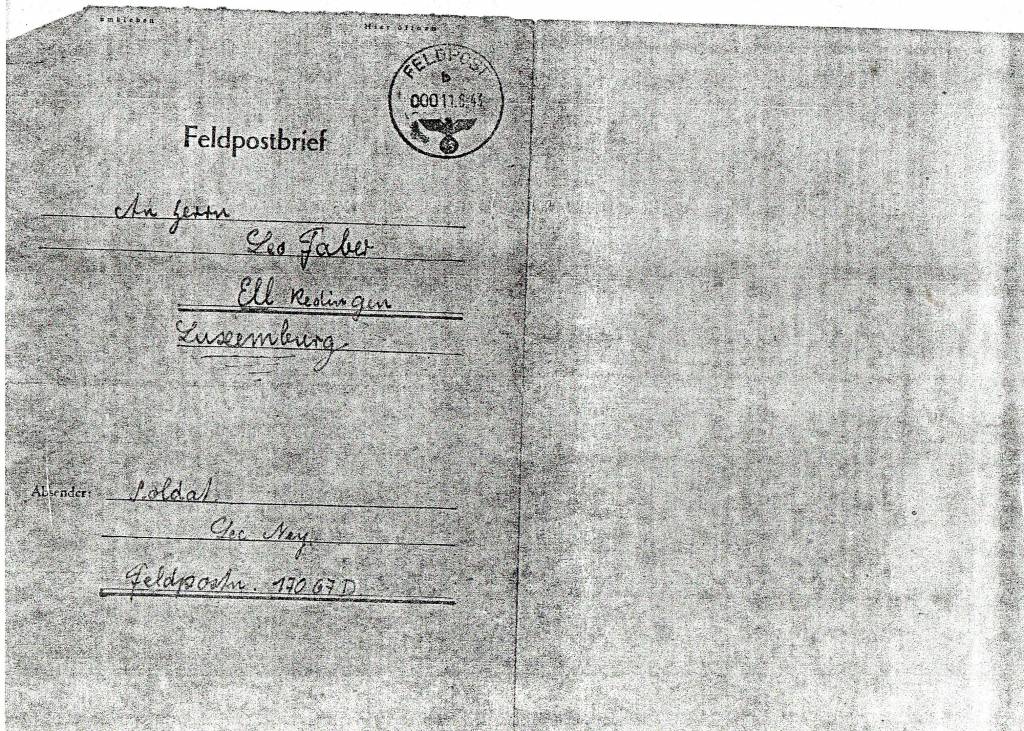 umkleben
Hier öffnen
FELDPOST
b
000 11.6.43
Feldpostbrief
An Herrn
Leo Faber
Ell Redingen
Luxemburg
Absender: Soldat
Ney
Feldpostn. 17067 D